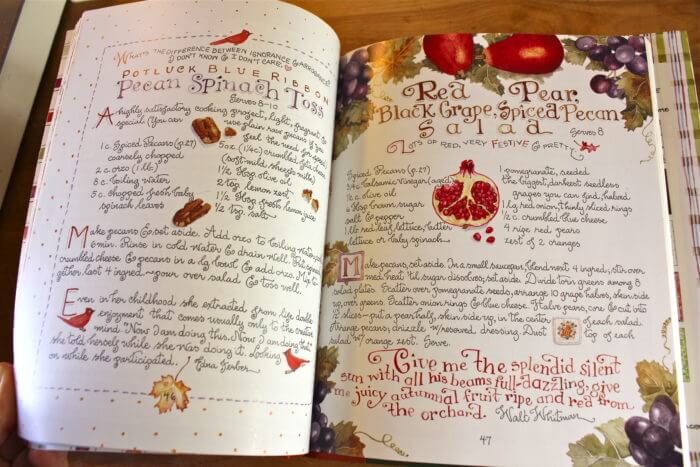 WHAT'S THE DIFFERENCE BETWEEN IGNORANCE & ARROGANCE?
I DON'T KNOW & I DON'T CARE.
POTLUCK BLUE RIBBON
Pecan Spinach Toss
Serves 8-10
A highly satisfactory cooking project, light, fragrant &
special. (You can use plain raw pecans if you
feel the need for speed.)
1 c. Spiced Pecans (p.27)
coarsely chopped
2 c. orzo (1 lb.)
8 c. boiling water
5 c. chopped fresh baby
spinach leaves
5 oz. (1¼c.) crumbled feta
(soft-mild sheep's milk)
1½ Tbsp. olive oil
2 tsp. lemon zest
1½ Tbsp. fresh lemon juice
½ tsp. salt
Make pecans & set aside. Add orzo to boiling water,
6 min. Rinse in cold water & drain well. Put spinach,
crumbled cheese & pecans in a lg. bowl & add orzo. Mix to-
gether last 4 ingred.~pour over salad & toss well.
Even in her childhood she extracted from life double
enjoyment that comes usually only to the creative
mind. "Now I am doing this. Now I am doing that,"
she told herself while she was doing it. Looking
on while she participated. Edna Ferber
146
Red Pear,
Black Grape, Spiced Pecan
Salad
Serves 8
LOTS OF RED, VERY FESTIVE & PRETTY
Spiced Pecans (p.27)
3/4 c. balsamic vinegar (aged)
½ c. olive oil
Tbsp. brown sugar
salt & pepper
1 lb. red leaf lettuce, butter
lettuce or baby spinach
1 pomegranate, seeded
the biggest, darkest seedless
grapes you can find, halved
1 lg. red onion, thinly sliced rings
1½ c. crumbled blue cheese
4 ripe red pears
zest of 2 oranges
Make pecans, set aside. In a small saucepan, blend next 4 ingred.; stir over
med. heat 'til sugar dissolves; set aside. Divide torn greens among 8
salad plates. Scatter over pomegranate seeds, arrange 10 grape halves, skin side
up, over greens. Scatter onion rings & blue cheese. Halve pears, core & cut into
slices~put a pear half, skin side up, in the center of each salad.
Arrange pecans; drizzle w/ reserved dressing. Dust top of each
salad w/ orange zest. Serve.
Give me the splendid silent
sun with all his beams full-dazzling; give
me juicy autumnal fruit ripe and red from
the orchard. Walt Whitman
47